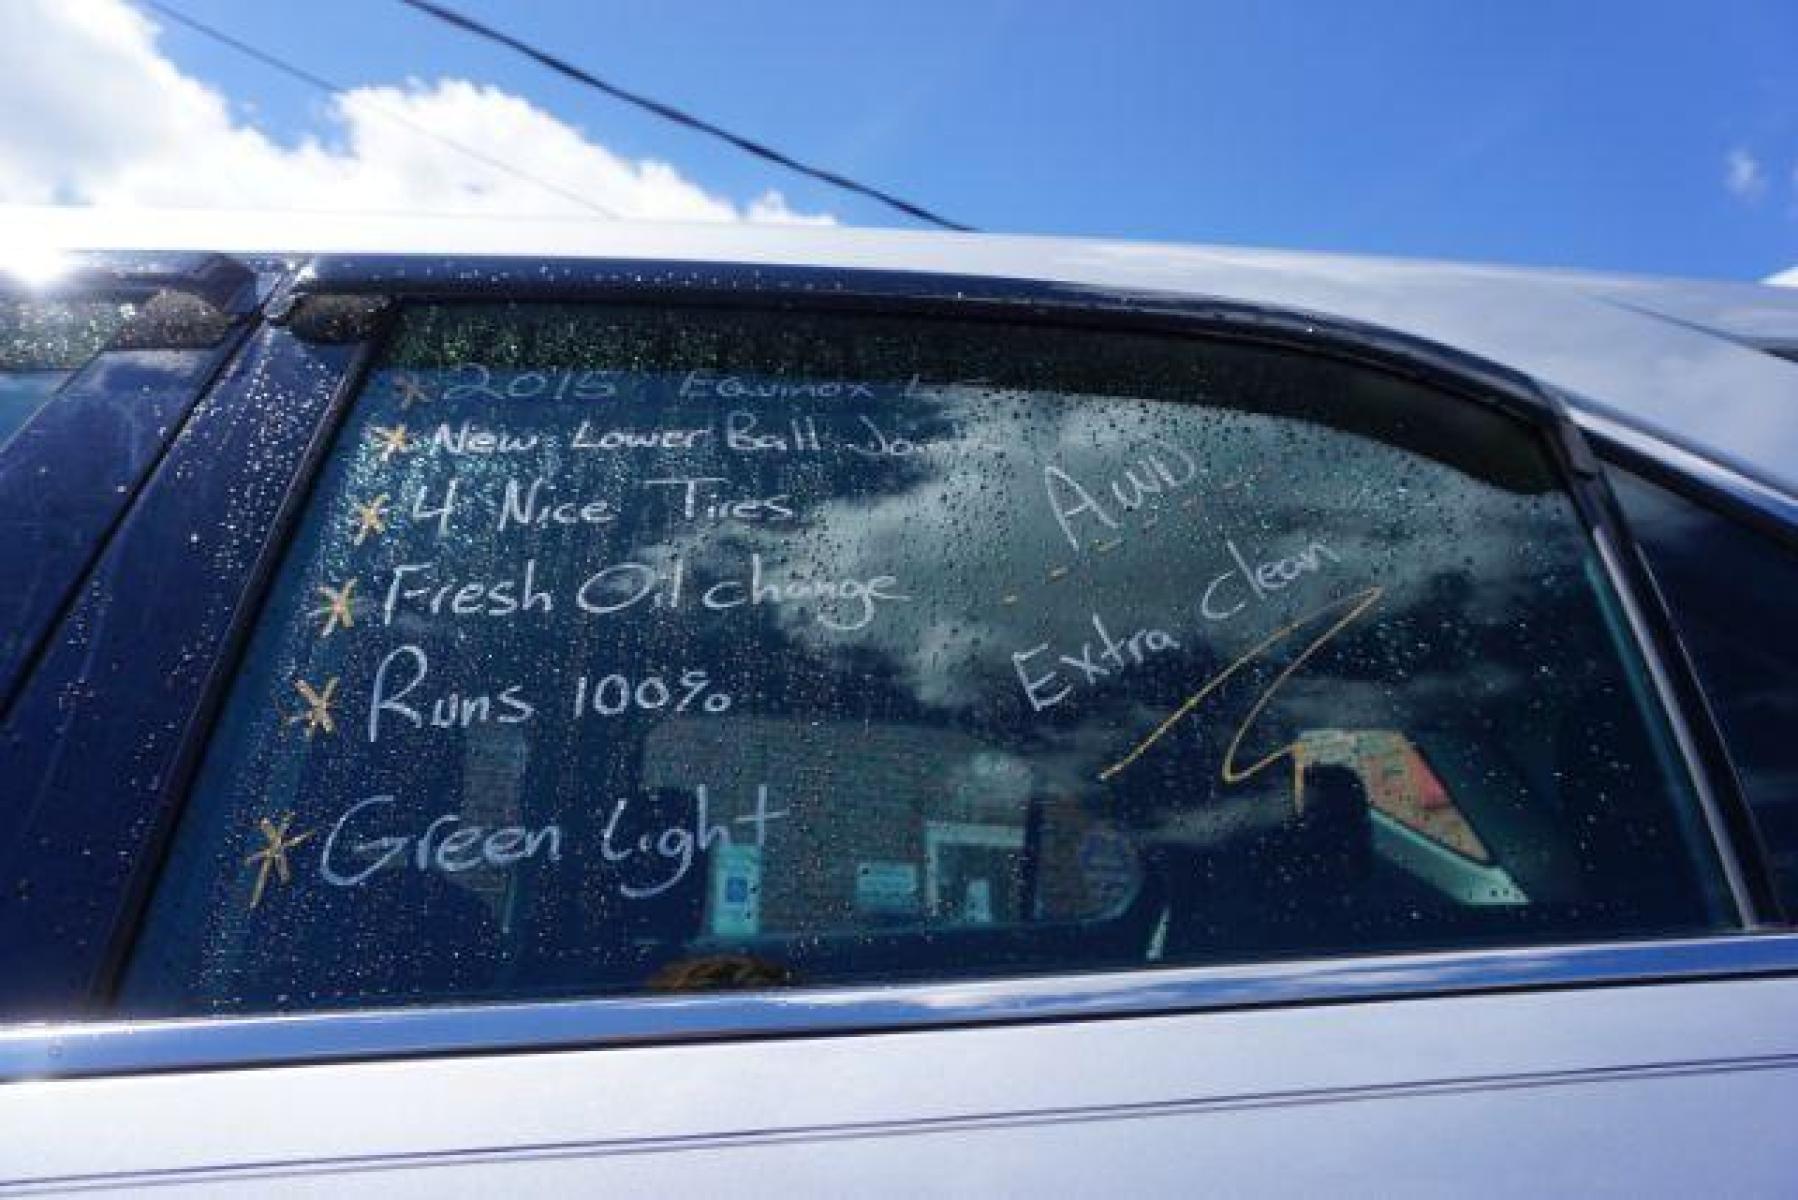 * 2015 Equinox
* New Lower Ball
* 4 Nice Tires
* Fresh Oil change
* Runs 100%
* Green Light
AWD
Extra Clean